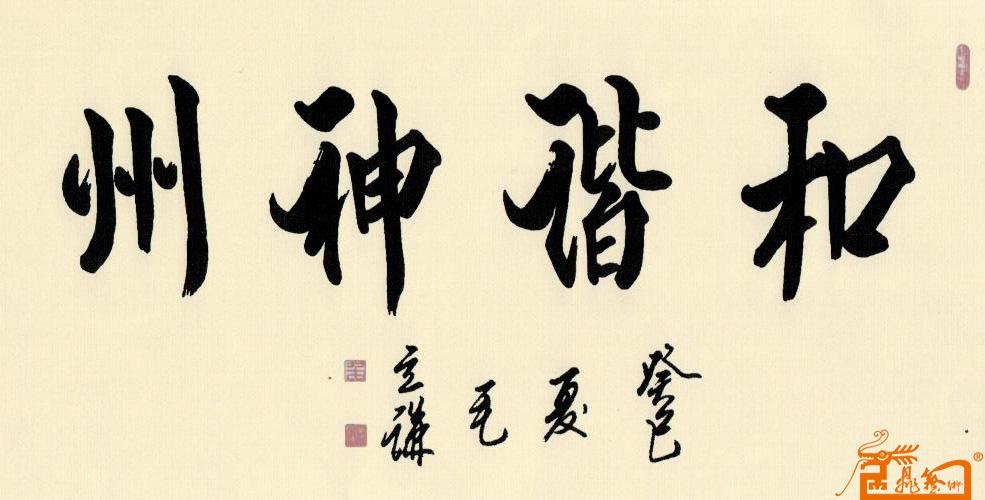 和谐神州
癸巳夏毛立